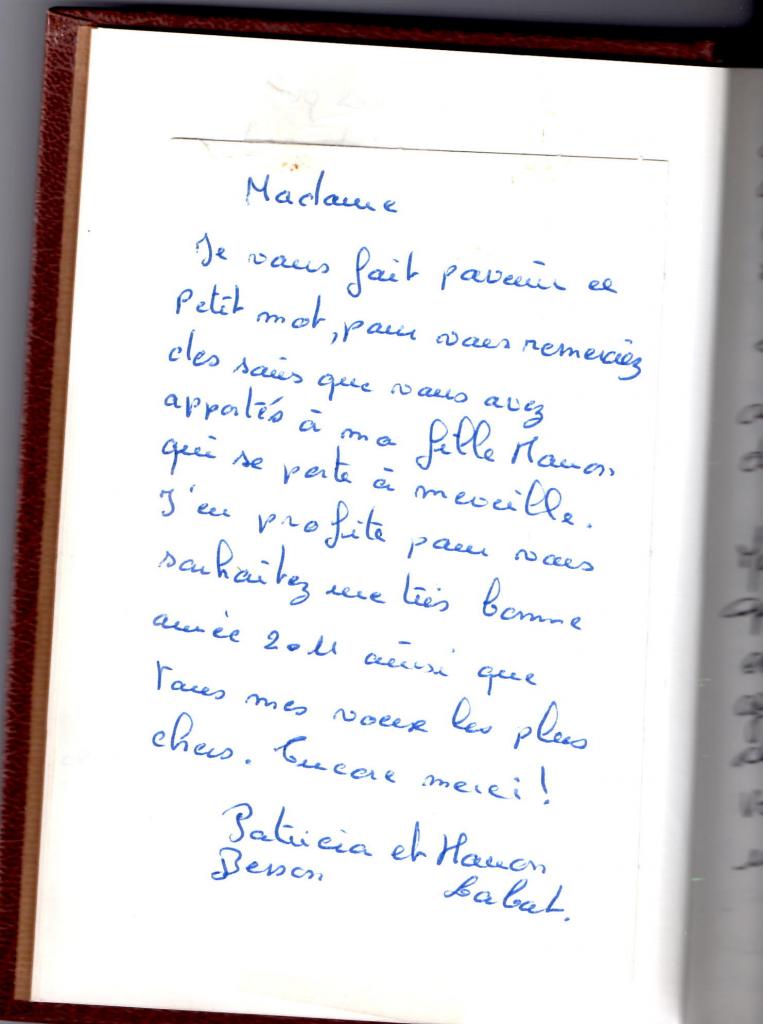 Madame
Je vous fait parvenir ce
petit mot, pour vous remerciez
des soins que vous avez
apportés à ma fille Manon
qui se porte à merveille.
J'en profite pour vous
souhaitez une très bonne
année 2011 ainsi que
tous mes voeux les plus
chers. Encore merci !
Patricia et Manon
Besson Labat.